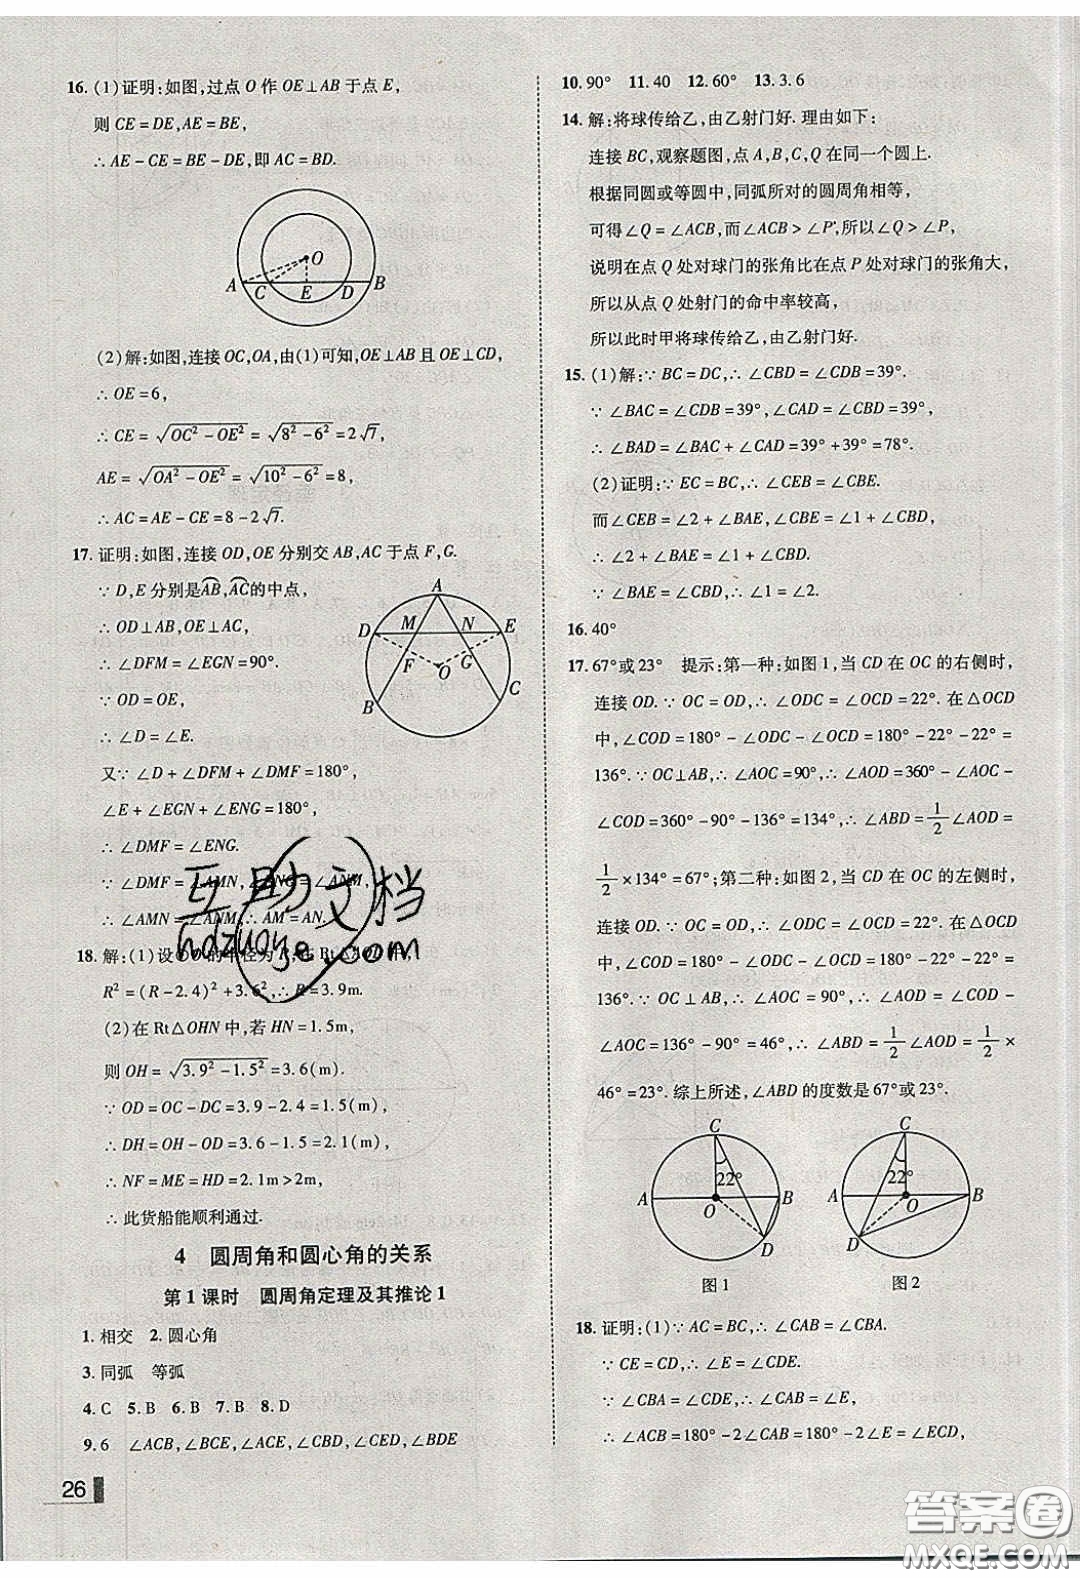 16. (1)证明:如图,过点 O 作 OE⊥AB 于点 E,
则 CE = DE, AE = BE,
∴ AE - CE = BE - DE,即 AC = BD.
O
A C E D B
(2)解:如图,连接 OC,OA,由(1)可知,OE⊥AB 且 OE⊥CD,
∴ OE = 6,
∴ CE = √(OC² - OE²) = √(8² - 6²) = 2√7,
AE = √(OA² - OE²) = √(10² - 6²) = 8,
∴ AC = AE - CE = 8 - 2√7.
17. 证明:如图,连接 OD,OE 分别交 AB,AC 于点 F,G.
∵ D,E 分别是⌒AB,⌒AC的中点,
∴ OD⊥AB,OE⊥AC,
∴ ∠DFM = ∠EGN = 90°.
∵ OD = OE,
∴ ∠D = ∠E.
A
D M N E
F O G
B C
又∵ ∠D + ∠DFM + ∠DMF = 180°,
∠E + ∠EGN + ∠ENG = 180°,
∴ ∠DMF = ∠ENG.
∵ ∠DMF = ∠AMN, ∠ENG = ∠ANM,
∴ ∠AMN = ∠ANM, ∴ AM = AN.
互助文档
hdzuoye.com
18. 解:(1)设⊙O 的半径为 R,在 Rt△AOD 中,
R² = (R - 2.4)² + 3.6², ∴ R = 3.9m.
(2)在 Rt△OHN 中,若 HN = 1.5m,
则 OH = √(3.9² - 1.5²) = 3.6(m).
∵ OD = OC - DC = 3.9 - 2.4 = 1.5(m),
∴ DH = OH - OD = 3.6 - 1.5 = 2.1(m),
∴ NF = ME = HD = 2.1m > 2m,
∴ 此货船能顺利通过.
4 圆周角和圆心角的关系
第 1 课时 圆周角定理及其推论 1
1. 相交 2. 圆心角
3. 同弧 等弧
4. C 5. B 6. B 7. B 8. D
9. 6 ∠ACB,∠BCE,∠ACE,∠CBD,∠CED,∠BDE
26
10. 90° 11. 40 12. 60° 13. 3.6
14. 解:将球传给乙,由乙射门好. 理由如下:
连接 BC,观察题图,点 A,B,C,Q 在同一个圆上.
根据同圆或等圆中,同弧所对的圆周角相等,
可得 ∠Q = ∠ACB,而 ∠ACB > ∠P,所以 ∠Q > ∠P,
说明在点 Q 处对球门的张角比在点 P 处对球门的张角大,
所以从点 Q 处射门的命中率较高,
所以此时甲将球传给乙,由乙射门好.
15. (1)解:∵ BC = DC, ∴ ∠CBD = ∠CDB = 39°.
∵ ∠BAC = ∠CDB = 39°, ∠CAD = ∠CBD = 39°,
∴ ∠BAD = ∠BAC + ∠CAD = 39° + 39° = 78°.
(2)证明:∵ EC = BC, ∴ ∠CEB = ∠CBE.
而 ∠CEB = ∠2 + ∠BAE, ∠CBE = ∠1 + ∠CBD,
∴ ∠2 + ∠BAE = ∠1 + ∠CBD.
∵ ∠BAE = ∠CBD, ∴ ∠1 = ∠2.
16. 40°
17. 67°或 23° 提示:第一种:如图 1,当 CD 在 OC 的右侧时,
连接 OD. ∵ OC = OD, ∴ ∠ODC = ∠OCD = 22°. 在 △OCD
中,∠COD = 180° - ∠ODC - ∠OCD = 180° - 22° - 22° =
136°. ∵ OC⊥AB, ∴ ∠AOC = 90°, ∴ ∠AOD = 360° - ∠AOC -
∠COD = 360° - 90° - 136° = 134°, ∴ ∠ABD = 1/2 ∠AOD =
1/2 × 134° = 67°;第二种:如图 2,当 CD 在 OC 的左侧时,
连接 OD. ∵ OC = OD, ∴ ∠ODC = ∠OCD = 22°. 在 △OCD
中,∠COD = 180° - ∠ODC - ∠OCD = 180° - 22° - 22° =
136°. ∵ OC⊥AB, ∴ ∠AOC = 90°, ∴ ∠AOD = ∠COD -
∠AOC = 136° - 90° = 46°, ∴ ∠ABD = 1/2 ∠AOD = 1/2 ×
46° = 23°. 综上所述,∠ABD 的度数是 67°或 23°.
C
22°
A O B
D
图 1
C
22°
A O B
D
图 2
18. 证明:(1) ∵ AC = BC, ∴ ∠CAB = ∠CBA.
∵ CE = CD, ∴ ∠E = ∠CDE.
∵ ∠CBA = ∠CDE, ∴ ∠CAB = ∠E,
∴ ∠ACB = 180° - 2∠CAB = 180° - 2∠E = ∠ECD,
答案圈
MXQE.COM